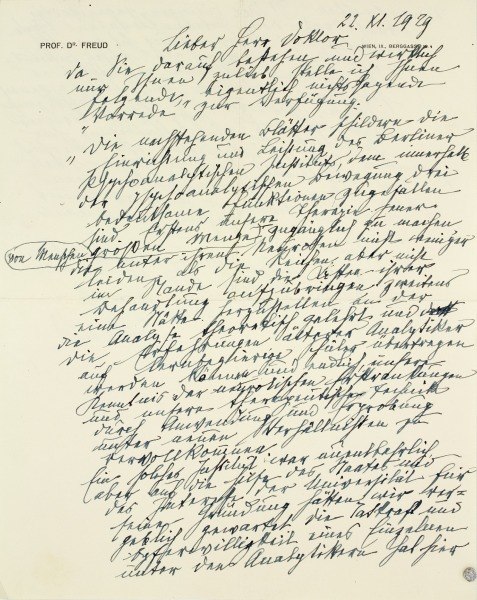 22. XI. 1929
PROF. DR. FREUD
WIEN, IX., BERGGASSE 19.
Lieber Herr Doktor
Da Sie darauf bestehen und wir
nur Ihnen stelle ich Ihnen
folgende, eigentlich nichtssagende
Vorrede zur Verfügung:
"Die nachstehenden Blätter schildern die
Einrichtung und Leistung des Berliner
Psychoanalytischen Instituts, dem innerhalb
der psychoanalytischen Bewegung drei
bedeutsame Funktionen zugefallen
sind: Erstens unsere Therapie jener
von Menschen
großen Menge zugänglich zu machen
die unter ihren Neurosen nicht weniger
leiden als die Reichen, aber nicht
im Stande sind die Kosten ihrer
Behandlung aufzubringen, zweitens
eine Stätte herzustellen an der
die Analyse theoretisch gelehrt und
die Erfahrungen älterer Analytiker
auf lernbegierige Schüler übertragen
werden können und endlich unsere
Kenntnis der neurotischen Erkrankungen
und unsere therapeutische Technik
durch Anwendung und Erprobung
unter neuen Verhältnissen zu
vervollkommnen.
Ein solches Institut war unentbehrlich
aber auf die Hilfe des Staates und
das Interesse der Universität für
seine Gründung hätten wir ver=
geblich gewartet. Die Tatkraft und
Opferwilligkeit eines Einzelnen
unter den Analytikern hat hier